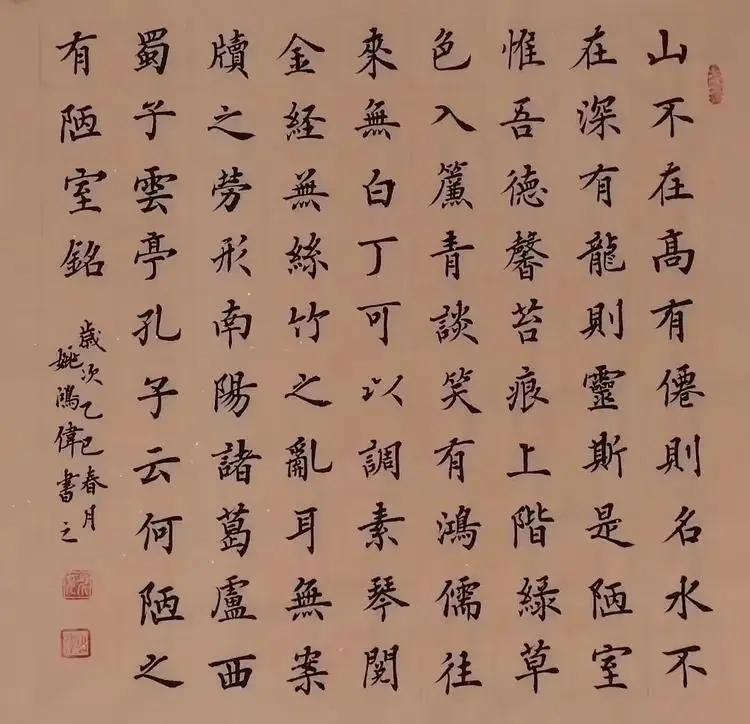 山不在高有僊則名水不
在深有龍則靈斯是陋室
惟吾德馨苔痕上階緑草
色入簾青談笑有鴻儒往
來無白丁可以調素琴閱
金経無絲竹之亂耳無案
牘之勞形南陽諸葛盧西
蜀子雲亭孔子云何陋之
有陋室銘
歲次乙巳春月
姚鴻偉書之